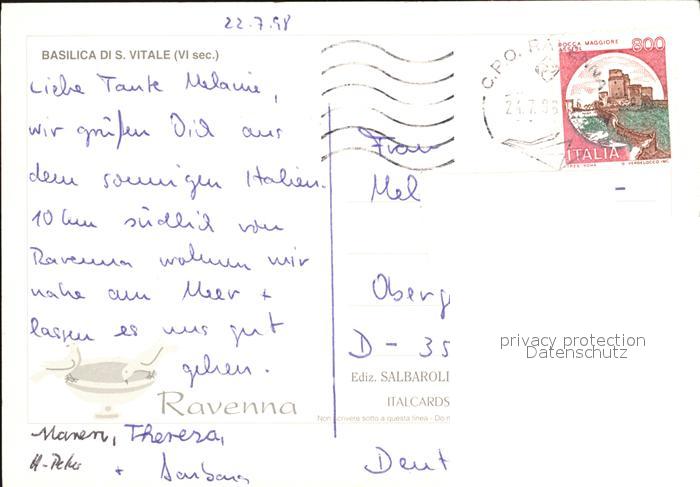 22.7.98
BASILICA DI S. VITALE (VI sec.)
Liebe Tante Melanie,
wir grüßen Dich aus
dem sonnigen Italien.
10 km südlich von
Ravenna wohnen wir
nahe am Meer +
lassen es uns gut
gehen.
Ravenna
Maren, Theresa,
H-Peter + Barbara
C.P.O. RA
ROCCA MAGGIORE
800
ITALIA
Frau
Mel
Oberg
D - 35
Ediz. SALBAROLI
ITALCARDS
Non scrivere sotto a questa linea - Do n
Deut
privacy protection
Datenschutz